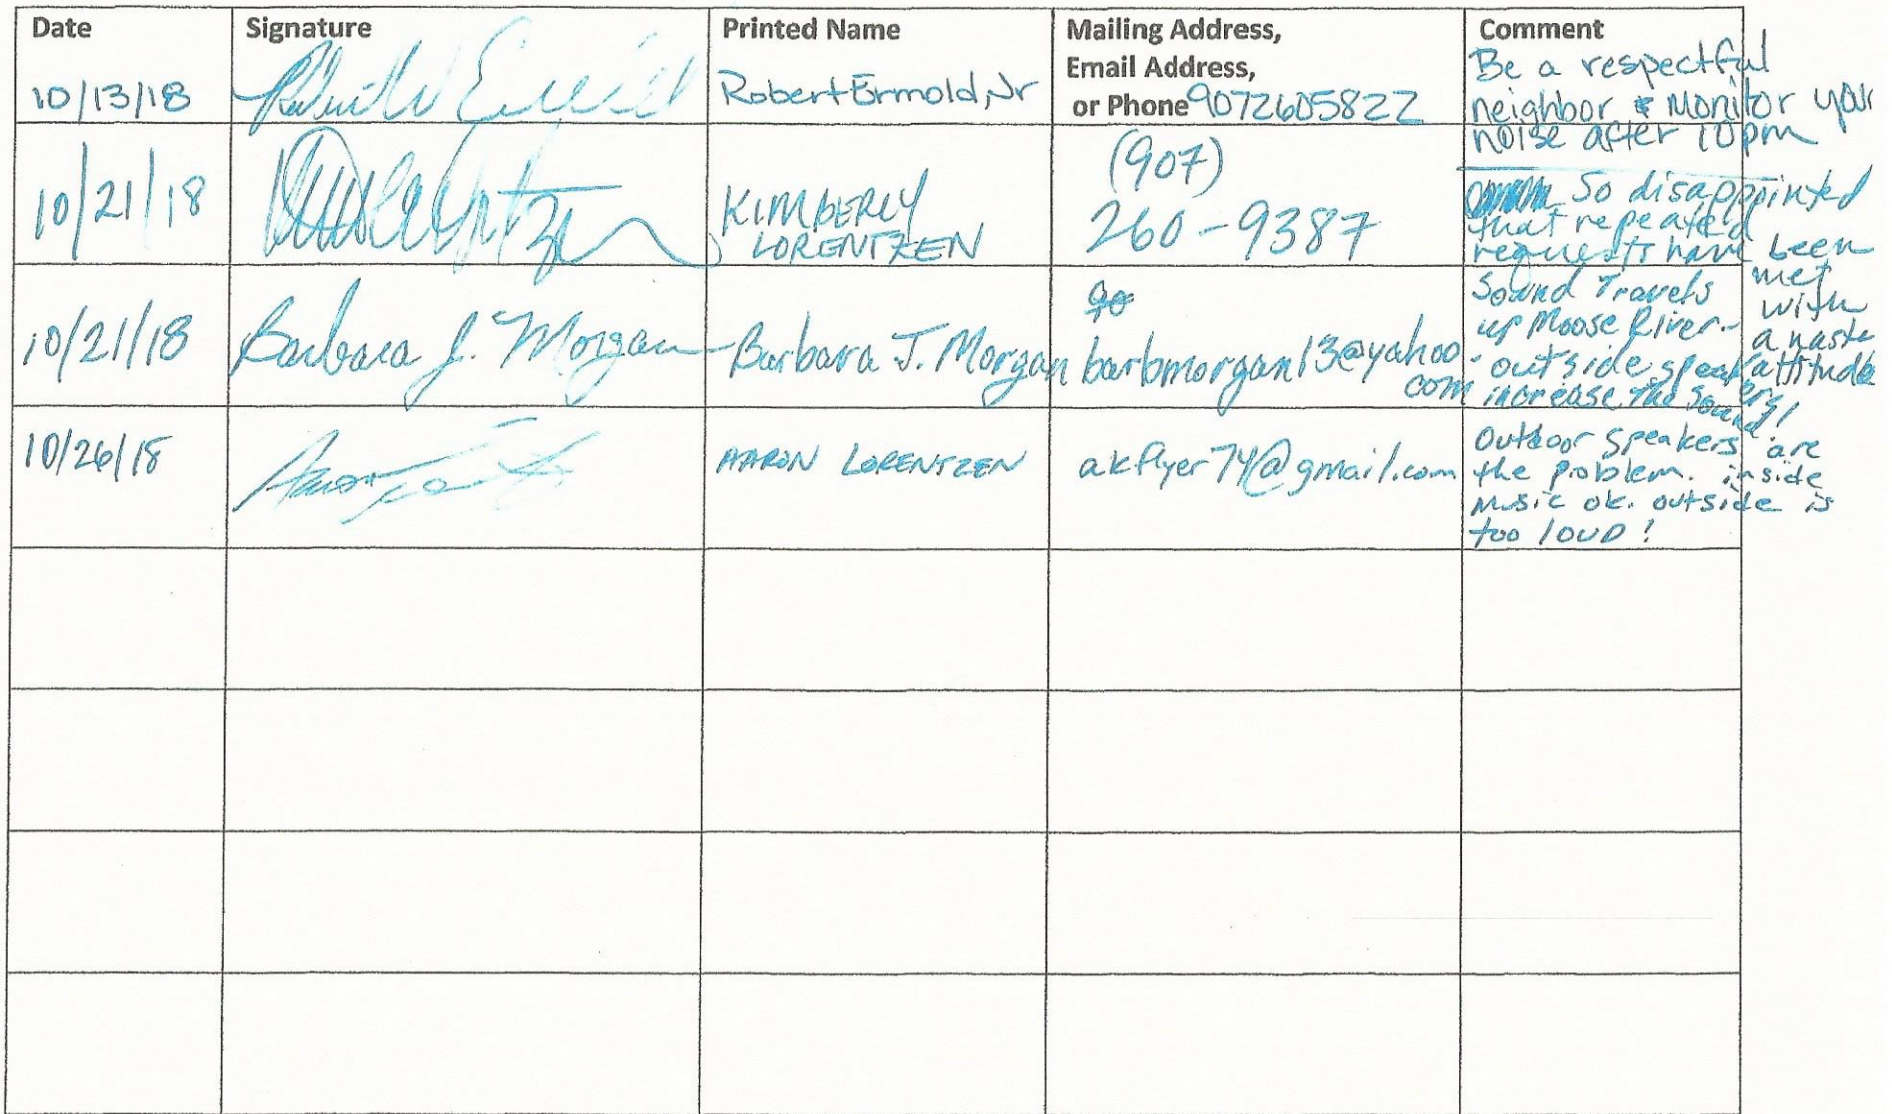 Date Signature Printed Name Mailing Address, Comment
Email Address,
or Phone
10/13/18 Robert Ermold, Jr 9072605822
Be a respectful
neighbor & Monitor your
noise after 10pm
10/21/18 KIMBERLY
LORENTZEN
(907)
260-9387
So disappointed
that repeated
requests have been
met
with
a nasty
attitude
10/21/18 Barbara J. Morgan Barbara J. Morgan
barbmorgan13@yahoo.
com
Sound Travels
up Moose River.
outside speakers
increase the sound!
10/26/18 AARON LORENTZEN akflyer74@gmail.com
Outdoor speakers are
the problem. inside
music ok. outside is
too loud!